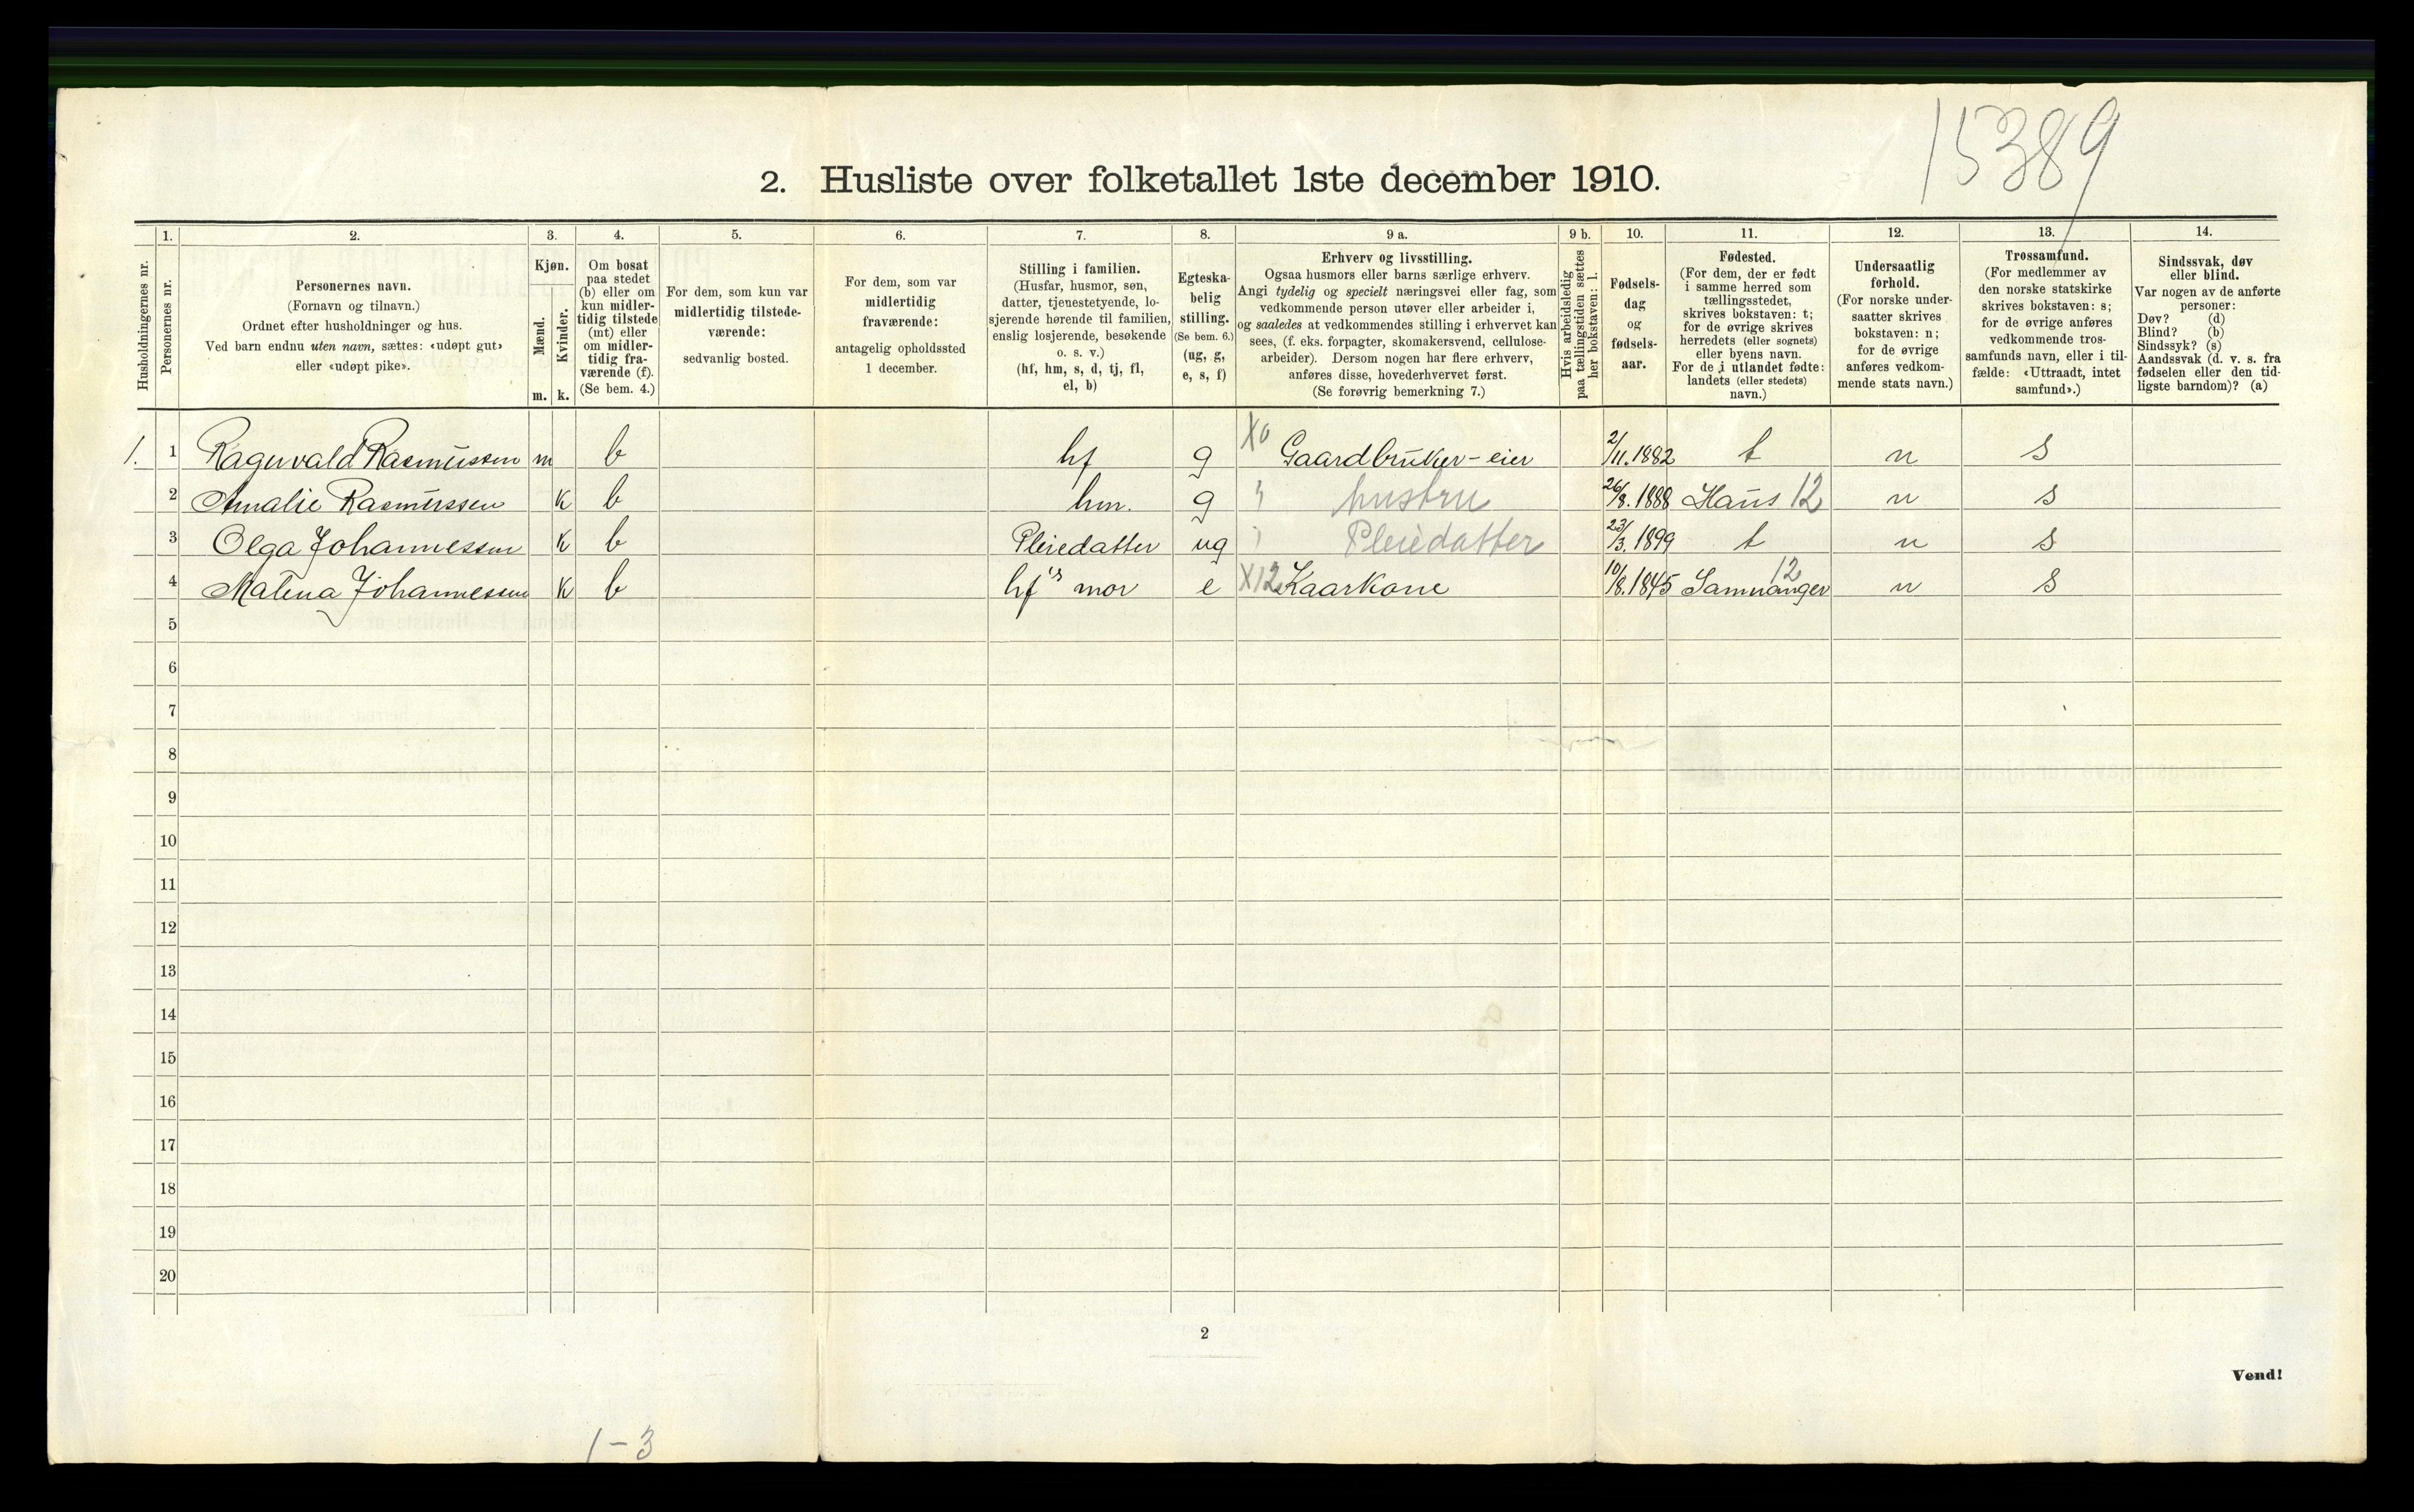 15389
2. Husliste over folketallet 1ste december 1910.
1. 2. 3. 4. 5. 6. 7. 8. 9 a. 9 b. 10. 11. 12. 13. 14.
Husholdningernes nr.
Personernes nr.
Personernes navn.
(Fornavn og tilnavn.)
Ordnet efter husholdninger og hus.
Ved barn endnu uten navn, sættes: «udøpt gut»
eller «udøpt pike».
Kjøn.
Mænd.
Kvinder.
m. k.
Om bosat
paa stedet
(b) eller om
kun midler-
tidig tilstede
(mt) eller
om midler-
tidig fra-
værende (f).
(Se bem. 4.)
For dem, som kun var
midlertidig tilstede-
værende:
sedvanlig bosted.
For dem, som var
midlertidig
fraværende:
antagelig opholdssted
1 december.
Stilling i familien.
(Husfar, husmor, søn,
datter, tjenestetyende, lo-
sjerende hørende til familien,
enslig losjerende, besøkende
o. s. v.)
(hf, hm, s, d, tj, fl,
el, b)
Egteska-
belig
stilling.
(Se bem. 6.)
(ug, g,
e, s, f)
Erhverv og livsstilling.
Ogsaa husmors eller barns særlige erhverv.
Angi tydelig og specielt næringsvei eller fag, som
vedkommende person utøver eller arbeider i,
og saaledes at vedkommendes stilling i erhvervet kan
sees, (f. eks. forpagter, skomakersvend, cellulose-
arbeider). Dersom nogen har flere erhverv,
anføres disse, hovederhvervet først.
(Se forøvrig bemerkning 7.)
Hvis arbeidsledig
paa tællingstiden sættes
her bokstaven: l.
Fødsels-
dag
og
fødsels-
aar.
Fødested.
(For dem, der er født
i samme herred som
tællingsstedet,
skrives bokstaven: t;
for de øvrige skrives
herredets (eller sognets)
eller byens navn.
For de i utlandet fødte:
landets (eller stedets)
navn.)
Undersaatlig
forhold.
(For norske under-
saatter skrives
bokstaven: n;
for de øvrige
anføres vedkom-
mende stats navn.)
Trossamfund.
(For medlemmer av
den norske statskirke
skrives bokstaven: s;
for de øvrige anføres
vedkommende tros-
samfunds navn, eller i til-
fælde: «Uttraadt, intet
samfund».)
Sindssvak, døv
eller blind.
Var nogen av de anførte
personer:
Døv? (d)
Blind? (b)
Sindssyk? (s)
Aandssvak (d. v. s. fra
fødselen eller den tid-
ligste barndom)? (a)
1. 1 Ragnvald Rasmussen m b hf g X0 Gaardbruker-eier 2/11. 1882 t n s
2 Amalie Rasmussen k b hm. g " hustru 26/8. 1888 Haus 12 n s
3 Olga Johannessen k b Pleiedatter ug " Pleiedatter 23/3. 1899 t n s
4 Matena Johannessen k b hf's mor e X12 Kaarkone 10/8. 1845 Samnanger 12 n s
5
6
7
8
9
10
11
12
13
14
15
16
17
18
19
20
2
Vend!
1-3